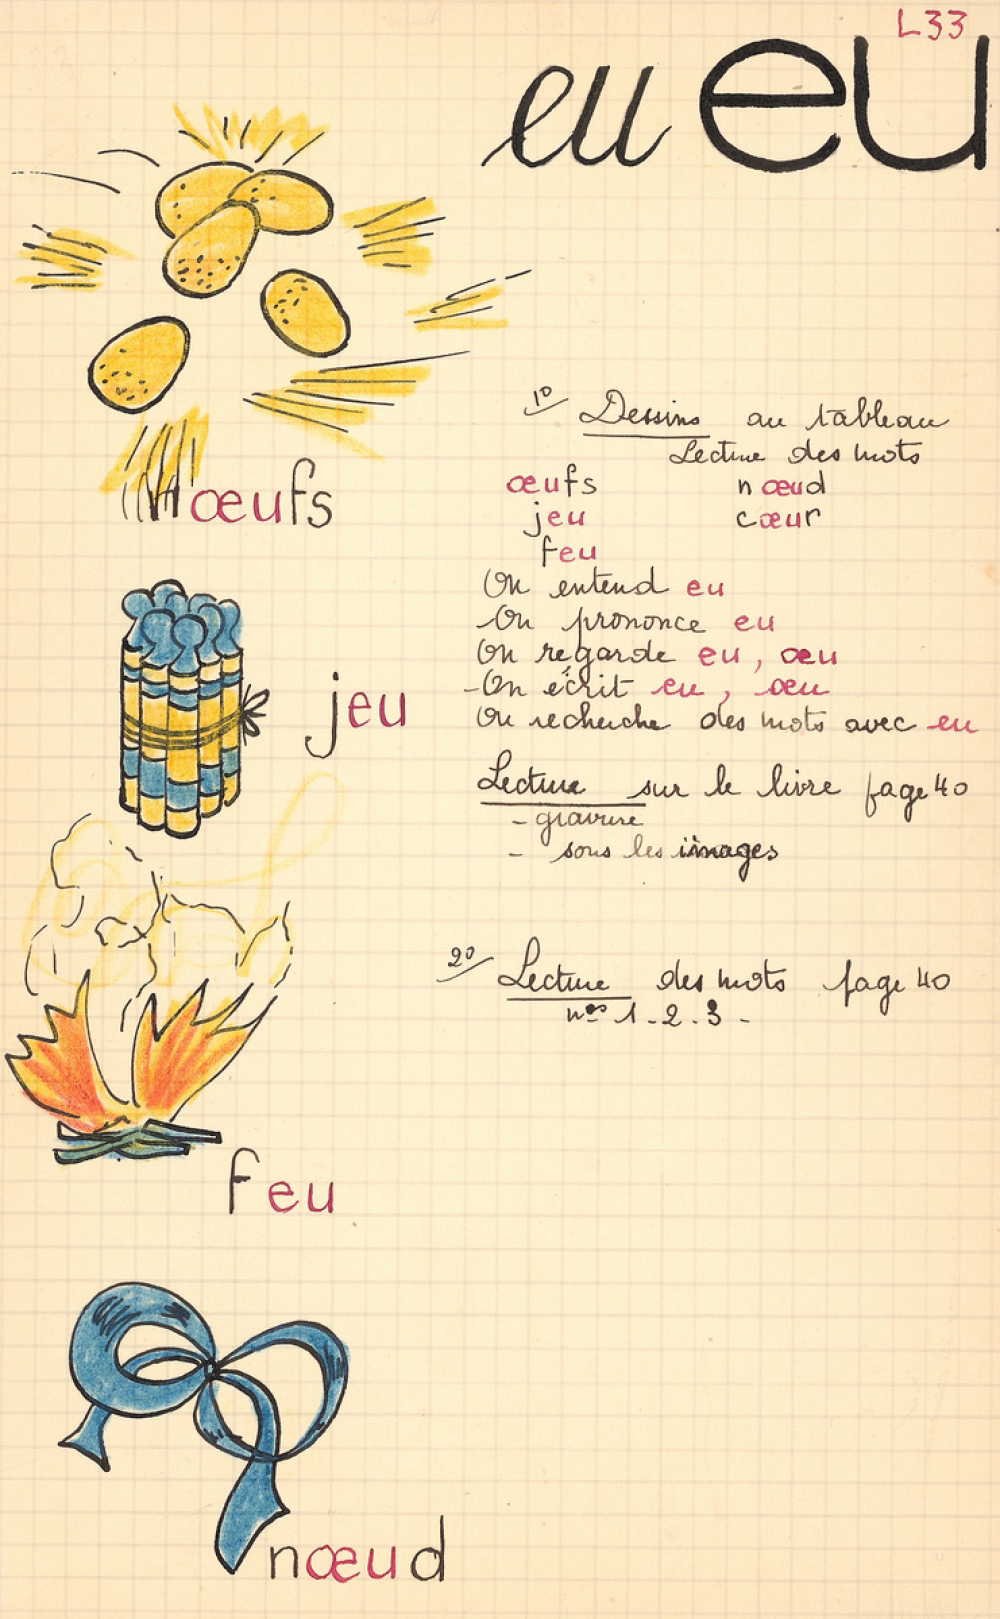 L33
eu eu
1º/ Dessins au tableau
Lecture des mots
œufs nœud
jeu cœur
feu
On entend eu
On prononce eu
On regarde eu, œu
- On écrit eu, œu
On recherche des mots avec eu
Lecture sur le livre page 40
- gravure
- sous les images
2º/ Lecture des mots page 40
nos 1.2.3 -
œufs
jeu
feu
nœud